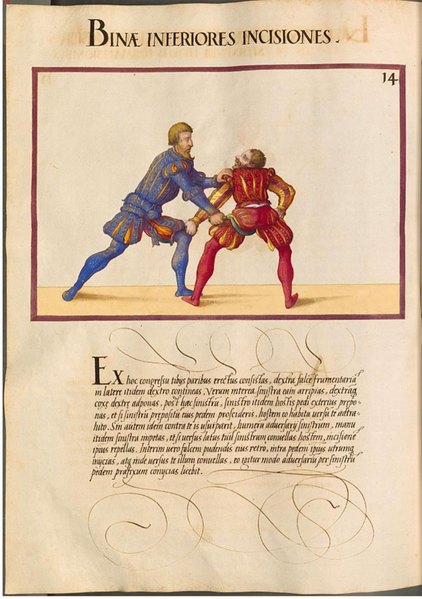 BINÆ INFERIORES INCISIONES.
14
Ex hoc congressu tibijs paribus erectus consistas, dextra falce frumentariā
in latere itidem dextro contineas. Verum interea sinistra eam arripias, dextraq
coxę dextrę adponas, post hac sinistrū, sinistro itidem hostis pedi exterius prępo-
nas, et si sinistrū prępositū tuus pedem proscideris, hostem eo habitu versū te adtra-
hito. Sin autem idem contra te is usurparit, humerū adversarij sinistrum, manu
itidem sinistra impetas, et si versus latus tuū sinistrum convellas hostem, incisionē
ipsius repellas. Interim vero falcem pudendis eius retro, intra pedem ipsius utrumq
inijcias, atq inde versus te illum convellas, eo igitur modo adversariū per sinistrū
pedem pręfixum conijcias licebit.